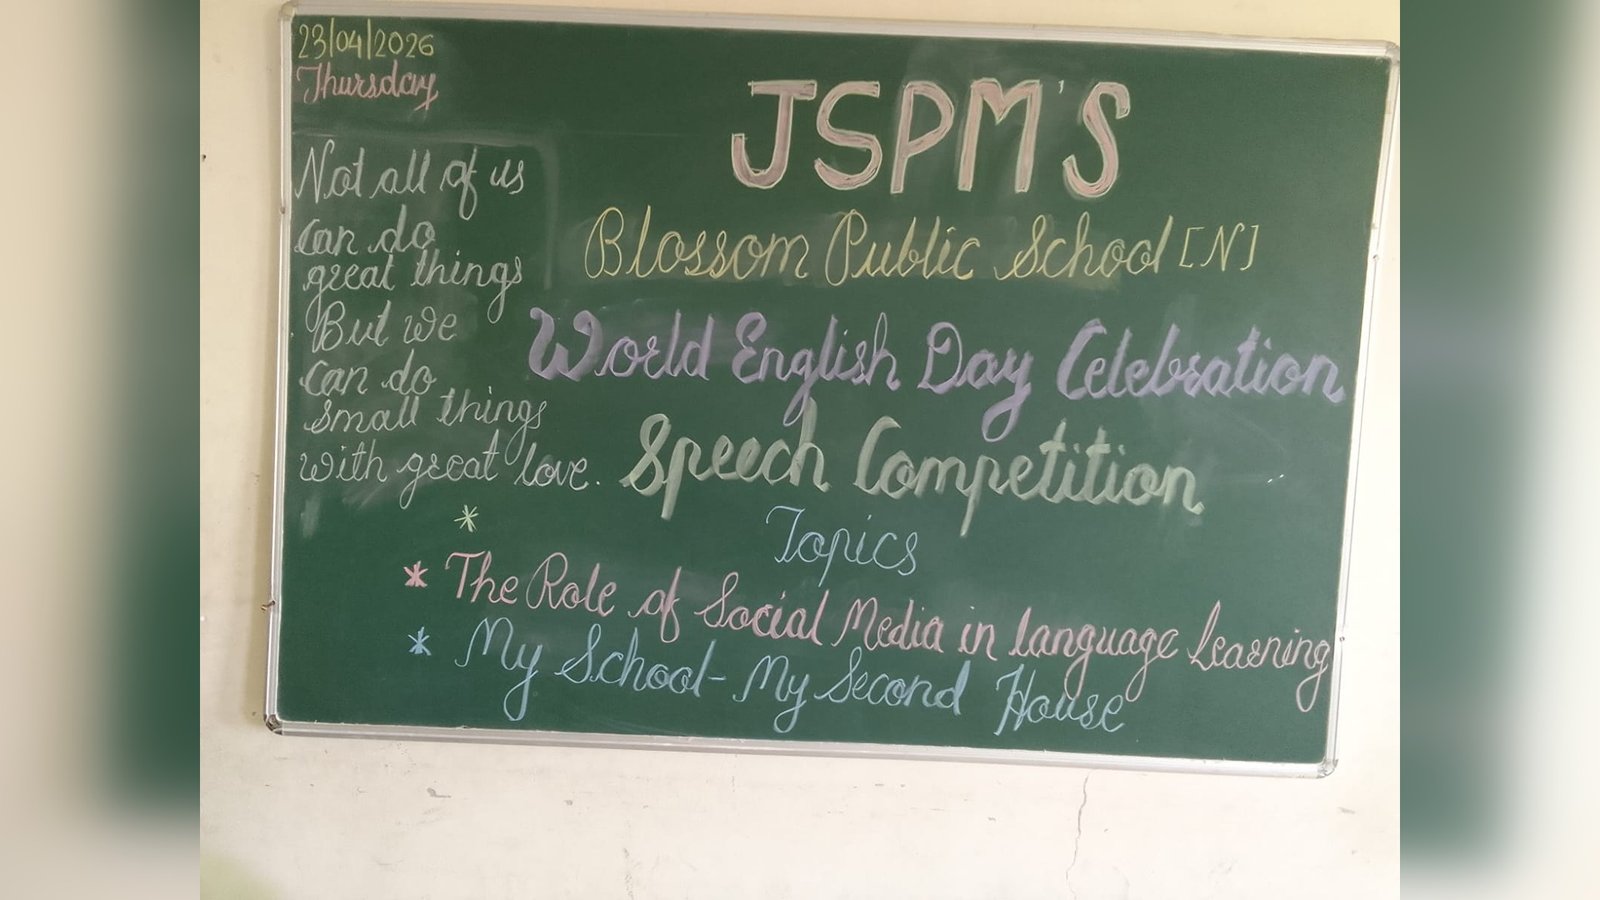 23/04/2026
Thursday
Not all of us
can do
great things
But we
can do
small things
with great love.
JSPM'S
Blossom Public School [N]
World English Day Celebration
Speech Competition
*
Topics
* The Role of Social Media in language Learning
* My School - My Second House